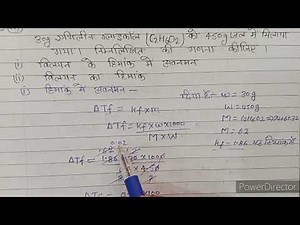 30g एथिलीन ग्लाइकॉल (C₂H₆O₂) को 450g जल में मिलाया
गया। निम्नलिखित की गणना कीजिए।
(i) विलयन के हिमांक में अवनमन
(ii) विलयन का हिमांक
(i) हिमांक में अवनमन-
दिया है- w = 30g
W = 450g
M = 62
ΔTf = Kf × m
ΔTf = Kf × w × 1000
M × W
ΔTf = 1.86 × 30 × 1000
PowerDirector